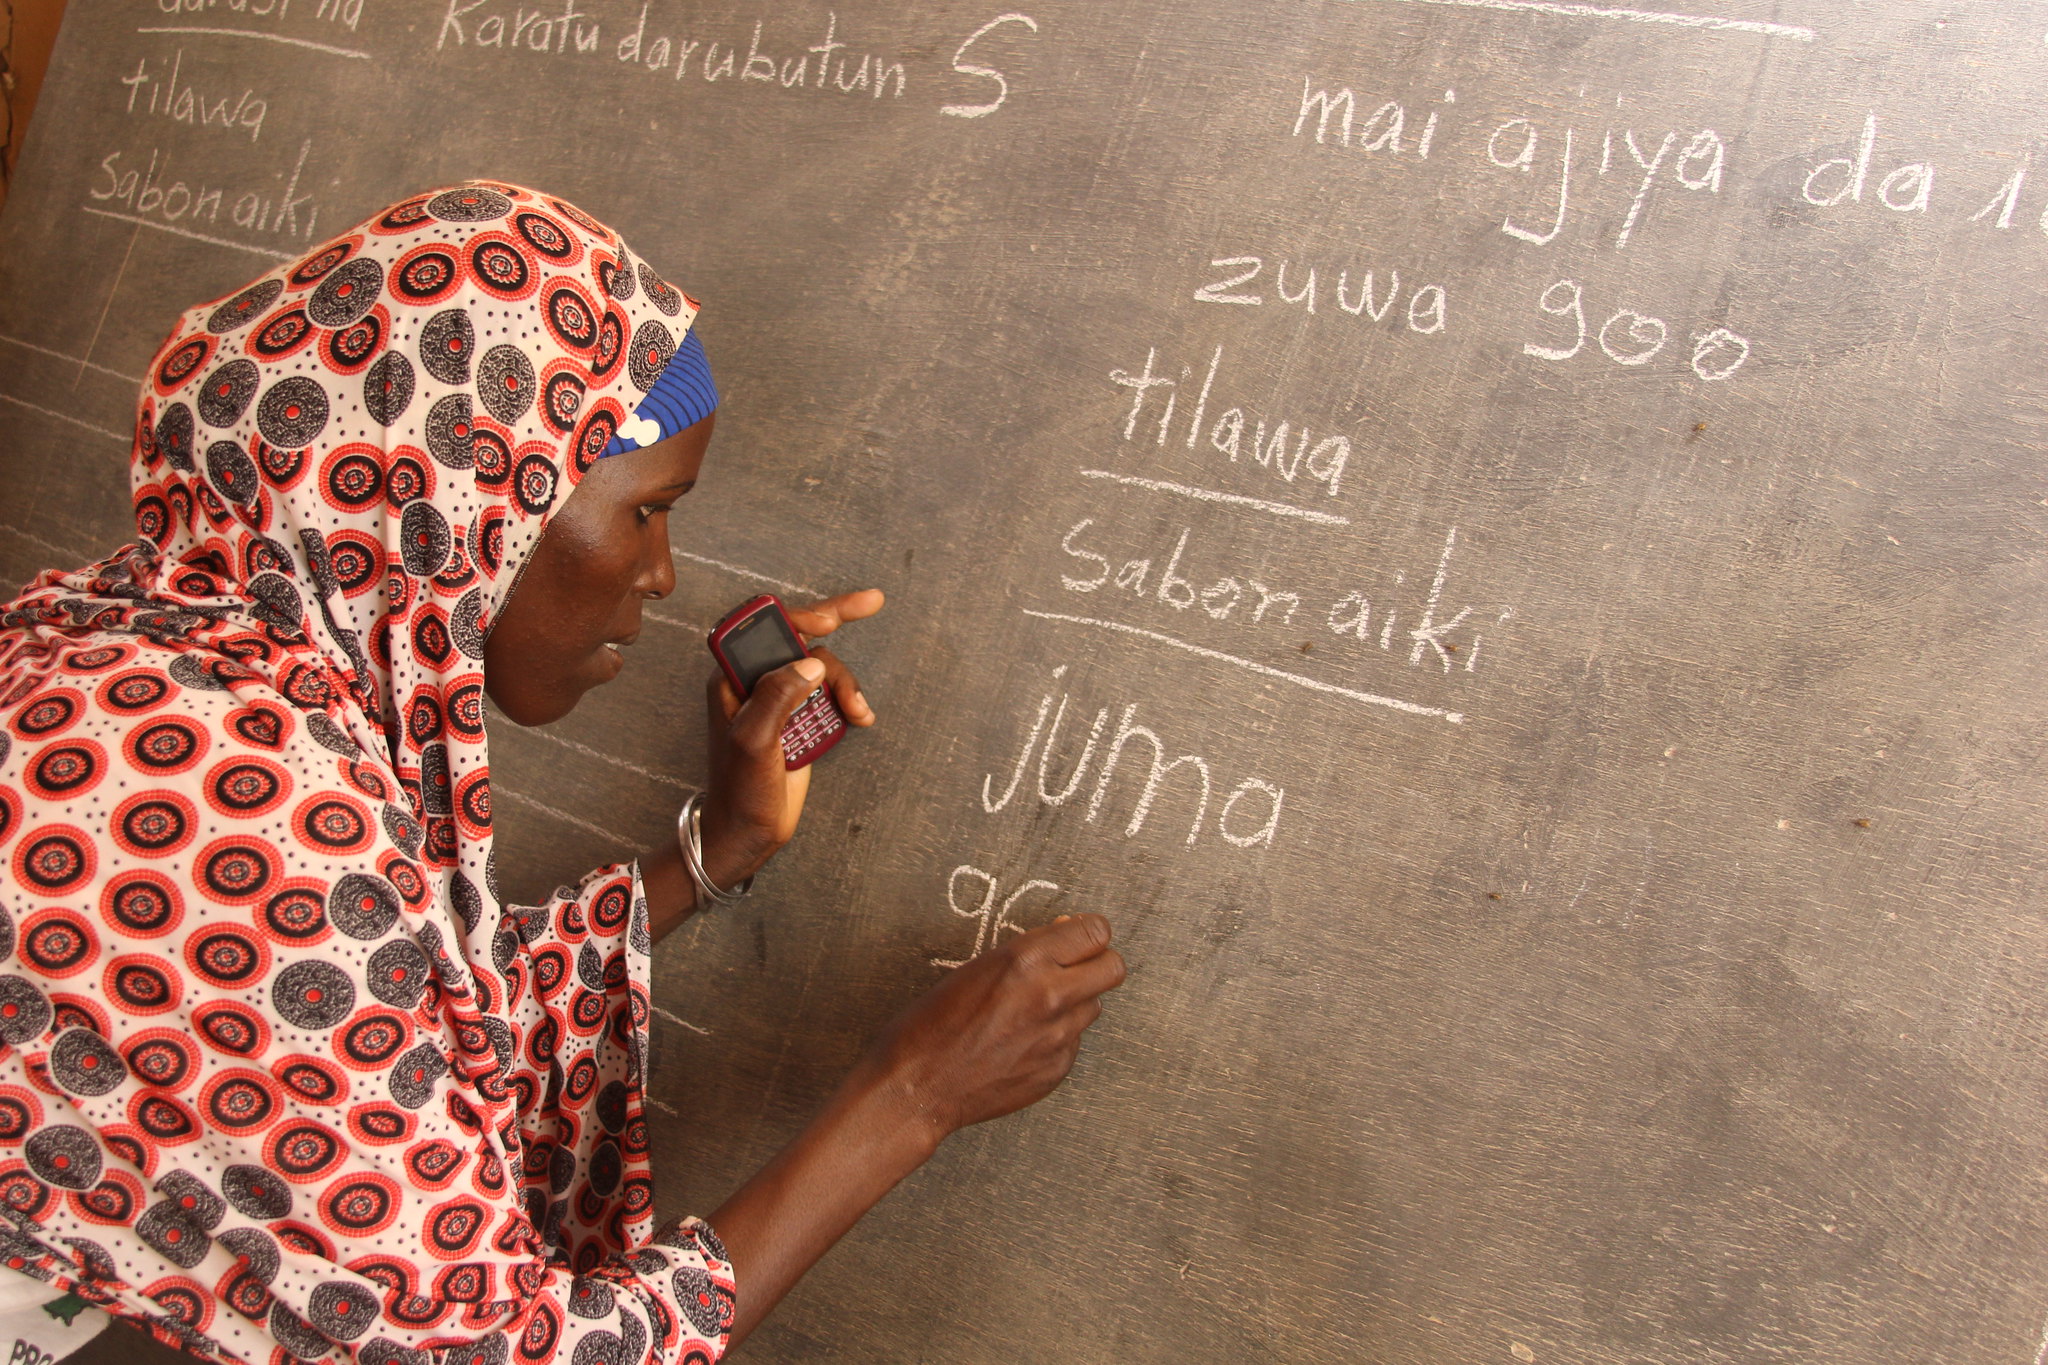 darasi na
Karatu darubutun S
tilawa
sabon aiki
mai ajiya da
zuwa goo
tilawa
sabon aiki
juma